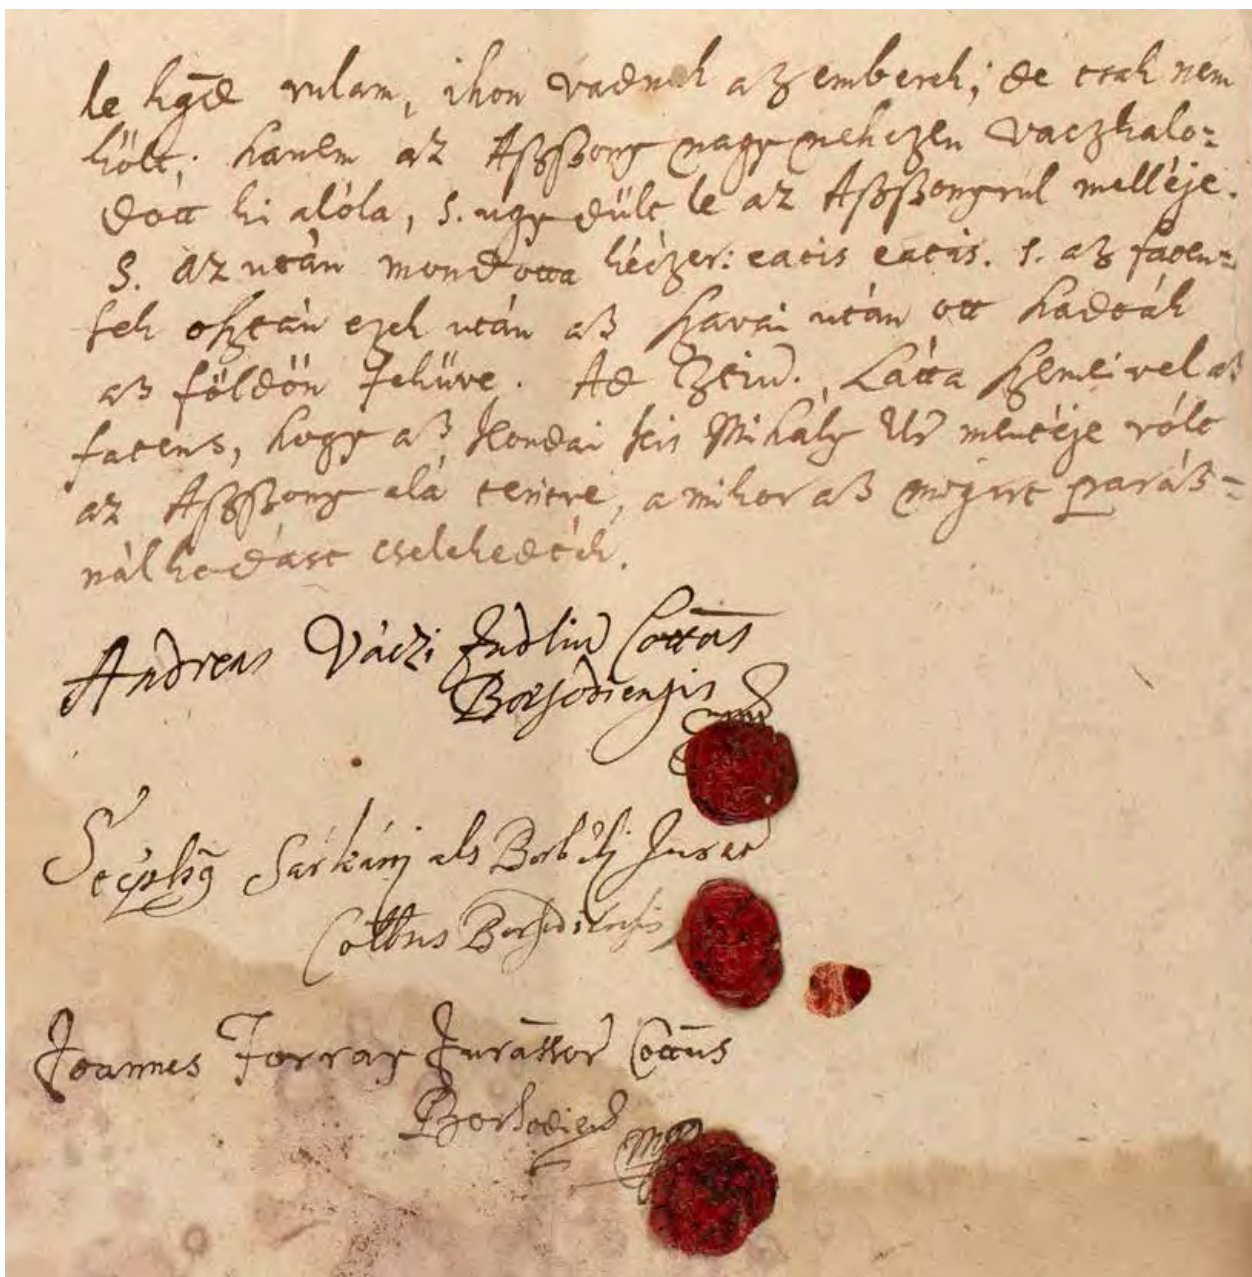 le kgđ rulam, ihon vadnak az emberek; de csak nem
költ; hanem az Aszszony nagy nehezen vaczkalo=
dott ki alóla, s. ugy dült le az Aszszonyrúl melléje.
S. az után mondotta kéczer: eatis eatis. s. az faten=
sek osztán ezek után az szavai után ott hadták
az földön feküve. Ad Tertium. Látta szemeivel az
fatens, hogy az Kondai Kis Mihály Ur mentéje vólt
az Aszszony alá terítve, a mikor az mégirt paráz=
nálkodást cselekedték.
Andreas Váczi Judlium Cottus
Borsodiensis
mp
Stephg Sárkány als Borbély Jurat
Cottus Borsodiensis
Joannes Forray Jurassor Cottus
Borsodiens
mp